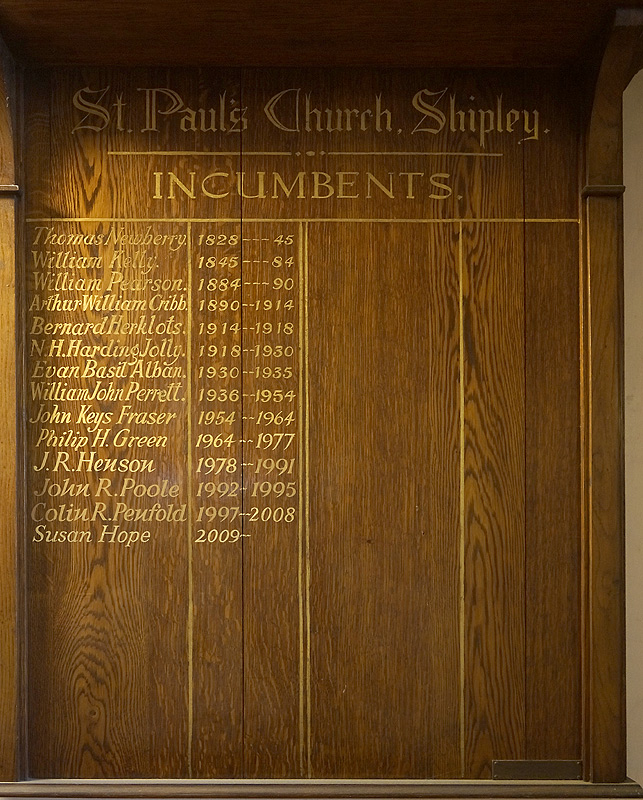 St. Paul's Church, Shipley.
INCUMBENTS.
Thomas Newberry. 1828---45
William Kelly. 1845--84
William Pearson. 1884---90
Arthur William Cribb. 1890-1914
Bernard Herklots. 1914-1918
N.H. Harding Jolly. 1918-1930
Evan Basil Alban. 1930-1935
William John Perrett. 1936-1954
John Keys Fraser 1954-1964
Philip H. Green 1964-1977
J.R. Henson 1978-1991
John R. Poole 1992-1995
Colin R. Penfold 1997-2008
Susan Hope 2009-